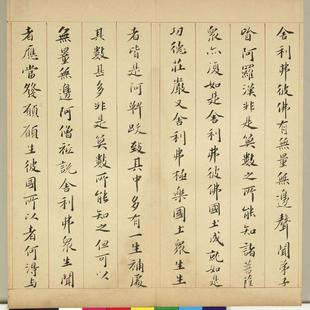 舍利弗彼佛有無量無邊聲聞弟子
皆阿羅漢非是筭數之所能知諸菩薩
衆亦復如是舍利弗彼佛國土成就如是
功德莊嚴又舍利弗極樂國土衆生生
者皆是阿鞞跋致其中多有一生補處
其數甚多非是筭數所能知之但可以
無量無邊阿僧祇說舍利弗衆生聞
者應當發願願生彼國所以者何得与